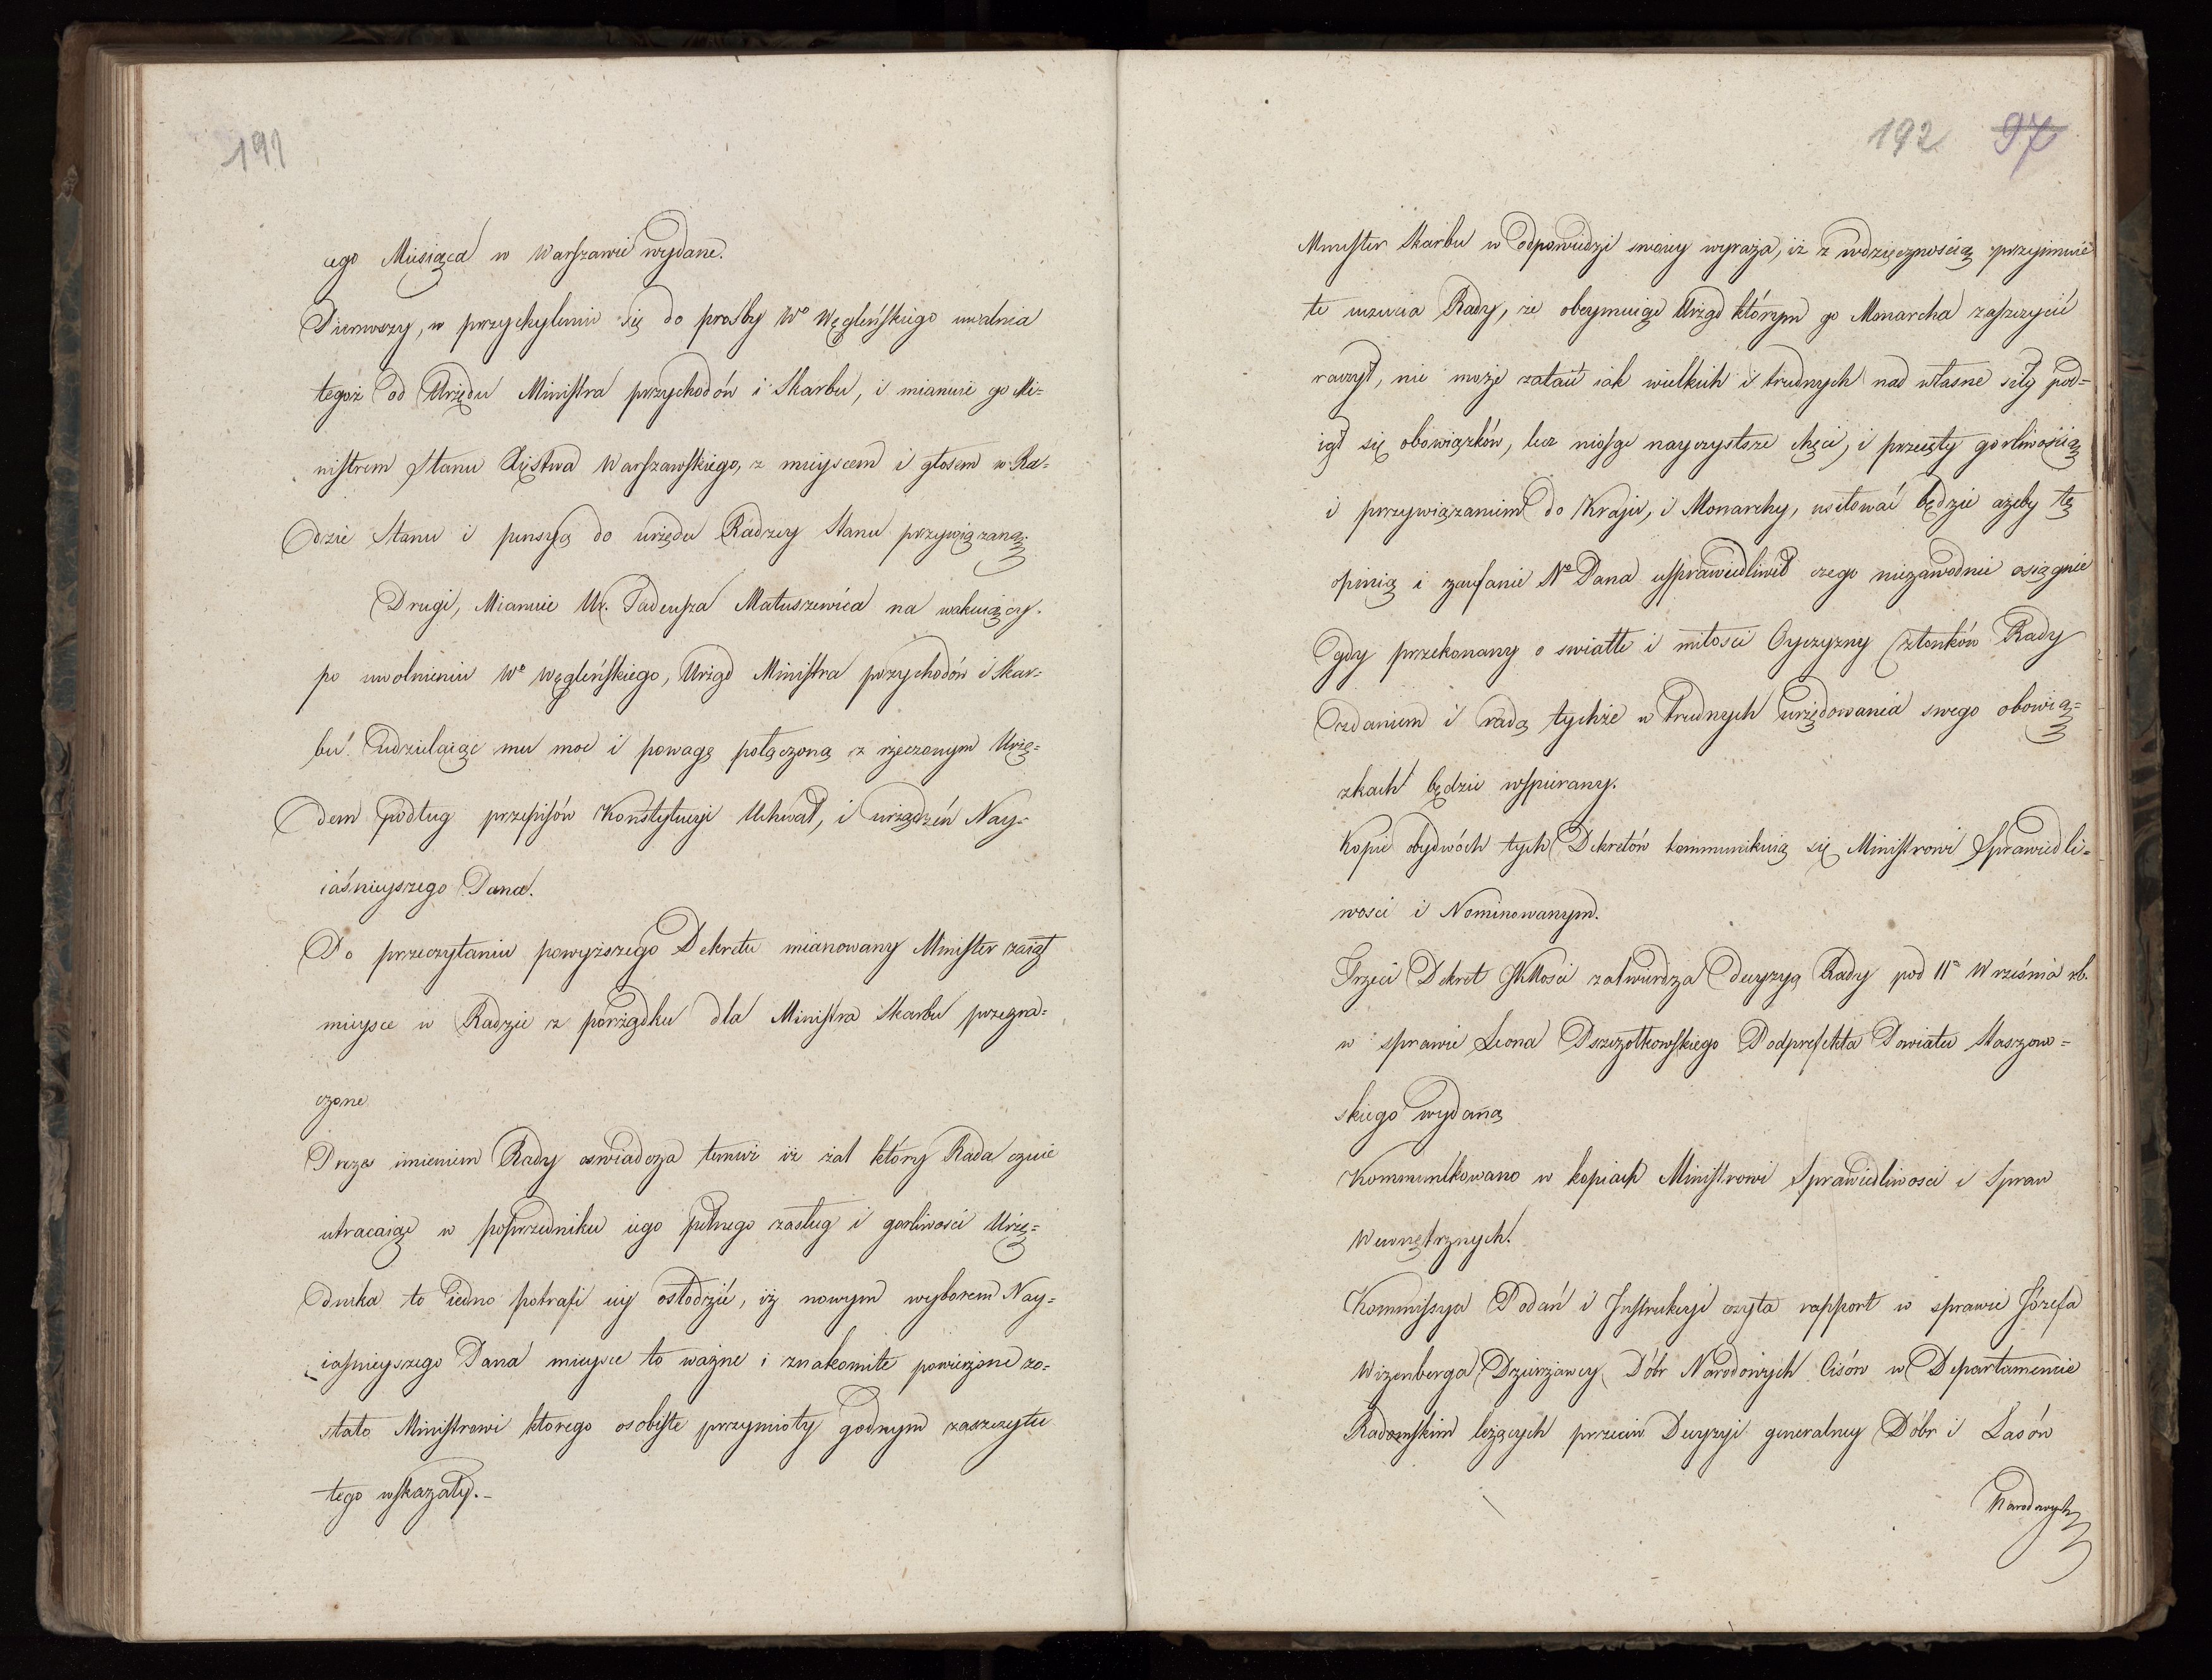 191
cego Miesiąca w Warszawie wydane.
Pierwszy, w przychyleniu się do prośby Wo Węgleńskiego uwalnia
tegoż od Urzędu Ministra przychodów i Skarbu, i mianuie go Mi=
nistrem Stanu Xięstwa Warszawskiego, z mieyscem i głosem w Ra=
dzie Stanu i pensyą do urzędu Radzcy Stanu przywiązaną.
Drugi, Mianuie Ur. Tadeusza Matuszewica na wakuiący
po uwolnieniu Wo Węgleńskiego, Urząd Ministra przychodów i Skar=
bu udzielaiąc mu moc i powagę połączoną z rzeczonym Urzę=
dem podług przepisów Konstytucyi Uchwał, i urządzeń Nay=
iaśnieyszego Pana.
Po przeczytaniu powyższego Dekretu mianowany Minister zaiął
mieysce w Radzie z porządku dla Ministra Skarbu przezna=
czone
Prezes imieniem Rady oswiadcza temuż iż żal który Rada czuie
utracaiąc w poprzedniku iego pełnego zasług i gorliwosci Urzę=
dnika to iedno potrafi iey osłodzić, iż nowym wyborem Nay=
iasnieyszego Pana mieysce to ważne i znakomite powierzone zo=
stało Ministrowi ktorego osobiste przymioty godnym zaszczytu
tego wskazały.–
192 97
Minister Skarbu w odpowiedzi swoiey wyraża, iż z wdzięcznością przyimuie
te uczucia Rady, że obeymuiąc Urząd którym go Monarcha zaszczycić
raczył, nie może zataić iak wielkich i trudnych nad własne siły pod=
iął się obowiązków, lecz niosąc nayczystsze chęci, i przeięty gorliwością
i przywiązaniem do Kraju, i Monarchy, usiłować będzie ażeby tę
opinią i zaufanie No Pana usprawiedliwił czego niezawodnie osiągnie
gdy przekonany o swiatłe i miłosci Oyczyzny Członków Rady
zdaniem i radą tychże w trudnych urzędowania swego obowią=
zkach będzie wspierany.
Kopie obydwóch tych Dekretów kommunikuią się Ministrowi Sprawiedli=
wosci i Nominowanym.
Trzeci Dekret JKMosci zatwierdza decyzyą Rady pod 11a Września rb.
w sprawie Leona Pszczołkowskiego Podprefekta Powiatu Staszow=
skiego wydaną
Kommunikowano w kopiach Ministrowi Sprawiedliwosci i Spraw
Wewnętrznych.
Kommissya Podań i Instrukcyi czyta rapport w sprawie Józefa
Wizenberga Dzierżawcy Dóbr Narodowych Cisów w Departamencie
Radomskim leżących przeciw Decyzyi generalney Dóbr i Lasów
Narodowych